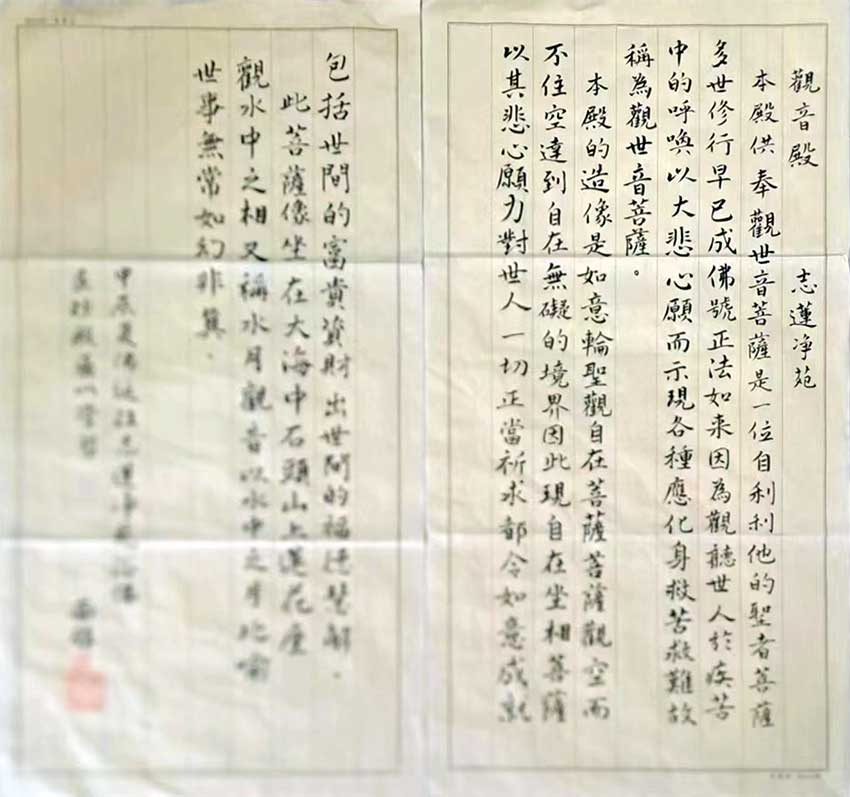 觀音殿 志蓮净苑
本殿供奉觀世音菩薩是一位自利利他的聖者菩薩
多世修行早已成佛號正法如来因為觀聽世人於疾苦
中的呼喚以大悲心願而示現各種應化身救苦救難故
稱為觀世音菩薩。
本殿的造像是如意輪聖觀自在菩薩菩薩觀空而
不住空達到自在無礙的境界因此現自在坐相菩薩
以其悲心願力對世人一切正當祈求都令如意成就
包括世間的富貴資財出世間的福德慧解.
此菩薩像坐在大海中石頭山上蓮花座
觀水中之相又稱水月觀音以水中之月比喻
世事無常如幻非真.
甲辰夏佛誕